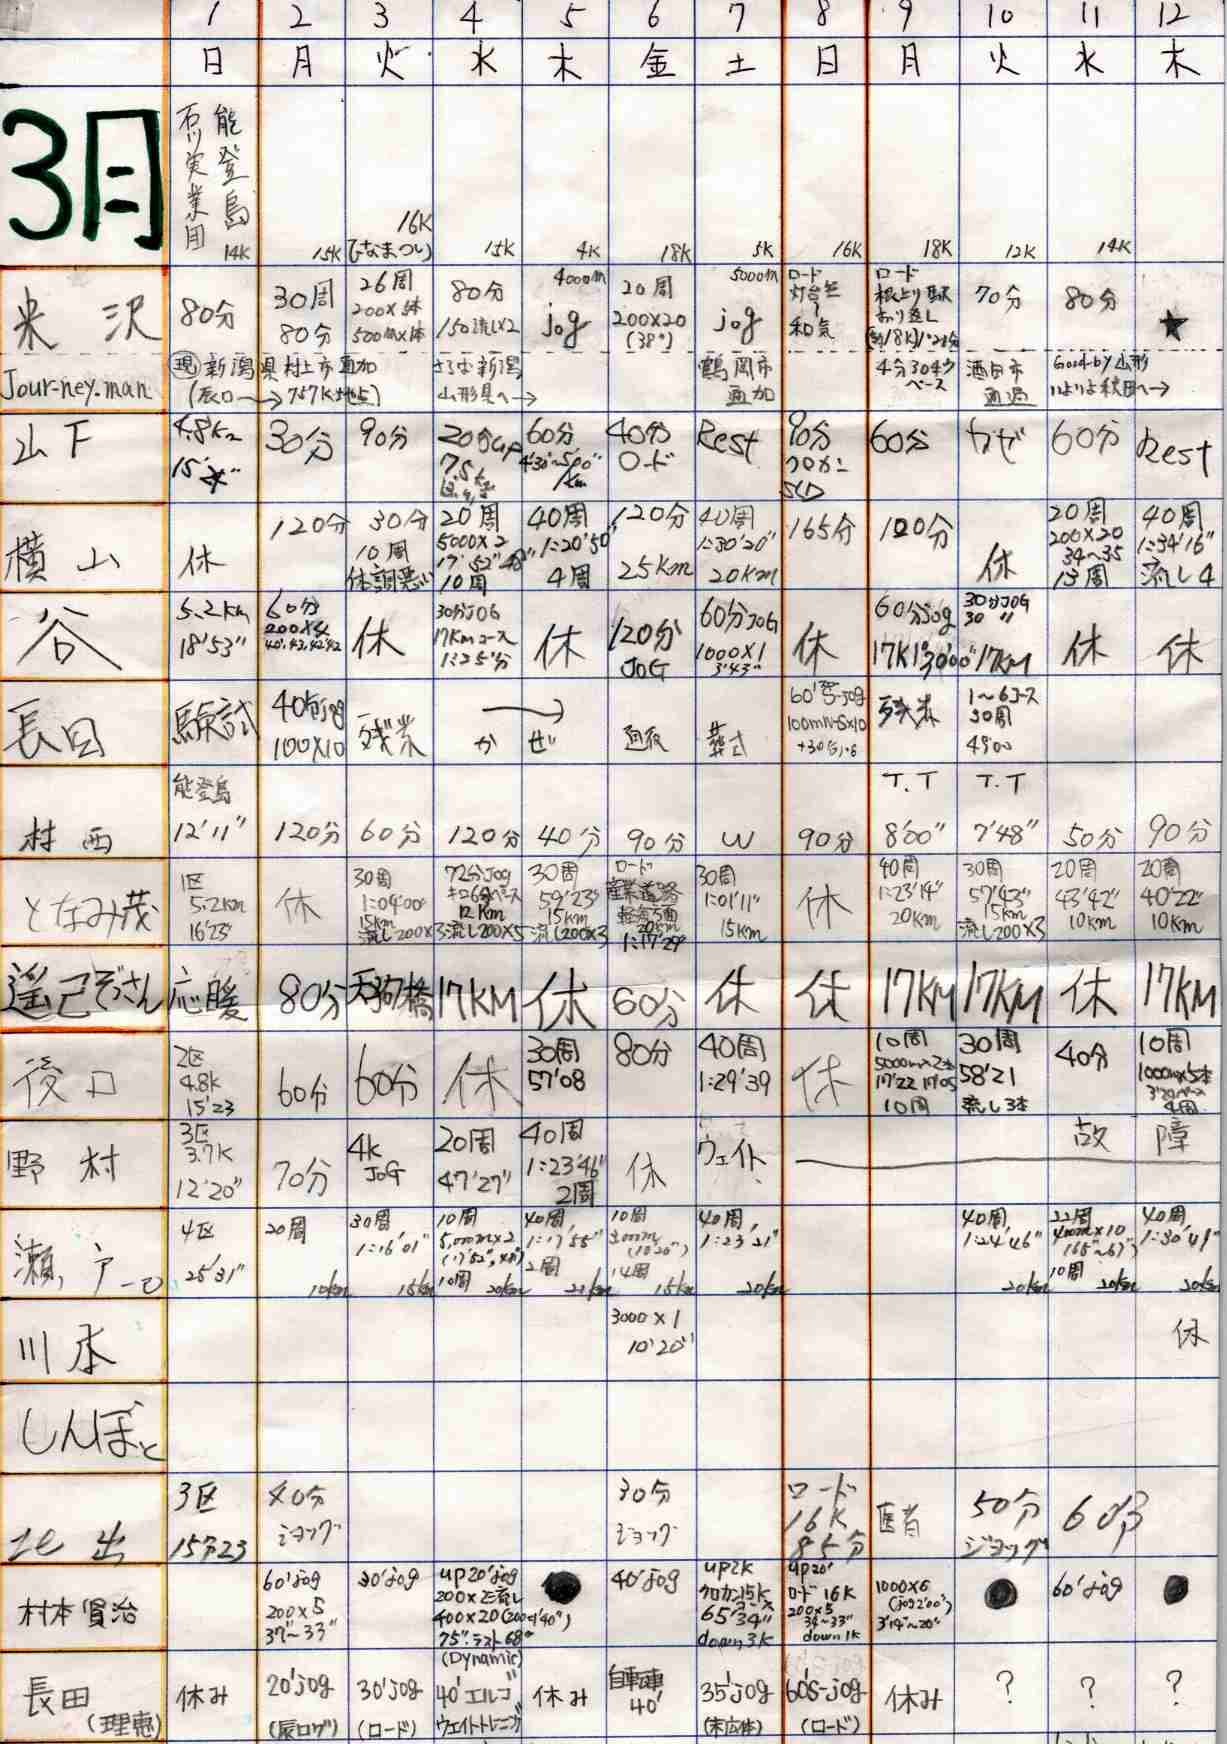 1 2 3 4 5 6 7 8 9 10 11 12
日 月 火 水 木 金 土 日 月 火 水 木
3月
能登島
石川実業団
14K 15K 16K (ひなまつり) 15K 4K 18K 5K 16K 18K 12K 14K
米沢
80分
30周
80分
26周
200×5本
500m×1本
80分
150流し×2
4000m
jog
20周
200×20
(38")
5000m
jog
ロード
灯台笹
和気
ロード
根上り駅
折り返し
70分
80分
★
Jour-ney.man
現 新潟県村上市通加
(辰口→757K地点)
さらば新潟
山形県へ→
鶴岡市
通加
4分30秒
ペース
酒田市
通過
Good-by 山形
いよいよ秋田へ→
山下
4.8km
15'★"
30分
90分
20分up
7.5k
60分
4'30"~5'00"
/km
40分
ロード
Rest
90分
クロカン
SLD
60分
カゼ
60分
Rest
横山
休
120分
30分
10周
体調悪い
20周
5000×2
17'52"
10周
40周
1:20'50"
4周
120分
25km
40周
1:30'20"
20km
165分
120分
休
20周
200×20
34~35
13周
40周
1:34'16"
流し4
谷
5.2km
18'53"
60分
200×4
40,42,42,42
休
30分JOG
17kmコース
1:25分
休
120分
JOG
60分JOG
1000×1
3'43"
休
60分Jog
17K1°30'00"
30分JOG
30 〃
17KM
休
休
長田
験試
40分jog
100×10
残業
→
かぜ
通夜
葬式
60'S-jog
100mW-S×10
残業
1~6コース
30周
49'00
村西
能登島
12'11"
120分
60分
120分
40分
90分
W
90分
T.T
8'00"
T.T
7'48"
50分
90分
となみ茂
1区
5.2km
16'23"
休
30周
1:04'00"
15km
流し200×3
72分JOG
キロ6分ペース
12km
流し200×5
30周
59'23"
15km
流し200×3
ロード
産業道路
20km
1:17'29"
30周
1:01'11"
15km
休
40周
1:23'14"
20km
30周
57'43"
15km
流し200×3
20周
43'42"
10km
20周
40'22"
10km
遥己ぞうさん
応援
80分
天狗橋
17KM
休
60分
休
休
17KM
17KM
休
17KM
後口
2区
4.8K
15'23
60分
60分
休
30周
57'08
80分
40周
1:29'39
休
10周
5000m×2本
17'22 17'05
10周
30周
58'21
流し3本
40分
10周
1000m×5本
3'20ペース
4周
野村
3区
3.7K
12'20"
70分
4k
JOG
20周
47'27"
40周
1:23'46"
2周
休
ウェイト
故障
瀬戸
4区
25'31"
20周
10km
30周
1:16'01"
15km
10周
5,000m×2
10周
20km
40周
1:17'55"
2周
21km
10周
3000m
(10'20")
14周
15km
40周
1:23'21"
20km
40周
1:24'46"
20km
22周
400m×10
(65"~67")
10周
20km
40周
1:30'49"
20km
川本
3000×1
10'20"
休
しんぼと
北出
3区
15分23
40分
ジョッグ
30分
ジョッグ
ロード
16K
85分
医者
50分
ジョッグ
60分
村本賢治
60'jog
200×5
37"~33"
30'jog
up20'jog
200×2流し
400×20(200m40")
75"ラスト68"
●
40'jog
up2K
クロカン15K
65'34"
down3K
up20'
ロード16K
200×5
34~33"
down1K
1000×6
(jog2'00")
3'14"~20"
●
60'jog
●
長田
(理恵)
休み
20'jog
(辰ログ)
30'jog
(ロード)
(Dynamic)
40'エルゴ
ウェイトトレーニング
休み
自転車
40'
35'jog
(末広体)
60'S-jog
(ロード)
休み
?
?
?